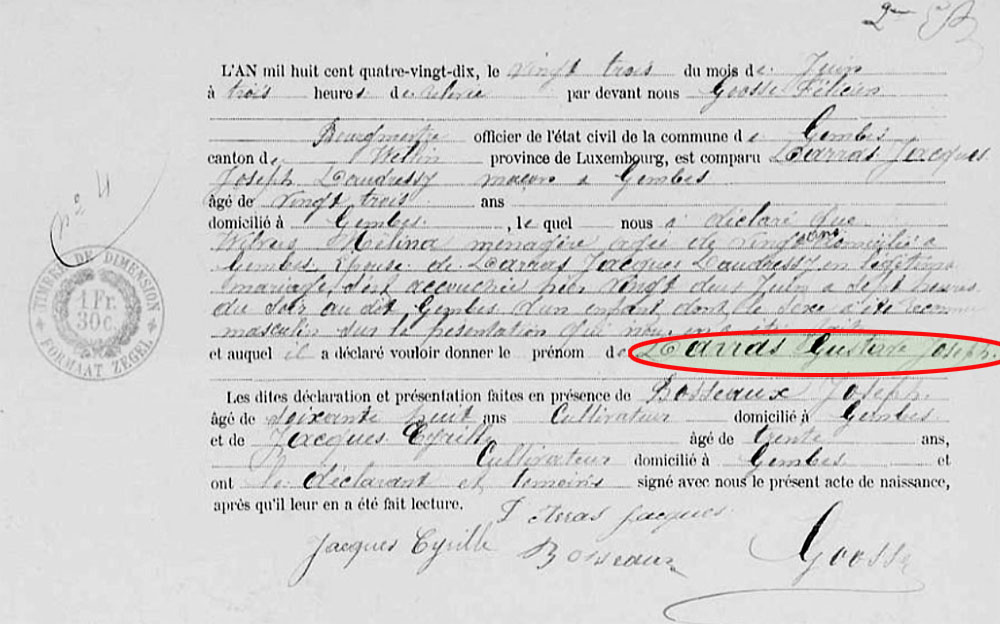 L'AN mil huit cent quatre-vingt-dix, le vingt trois du mois de Juin
à trois heures de relevée par devant nous Goosse Félicien
Bourgmestre officier de l'état civil de la commune de Gembes
canton de Wellin province de Luxembourg, est comparu Darras Jacques
Joseph Daudressy maçon à Gembes
âgé de vingt trois ans
domicilié à Gembes, le quel nous a déclaré que
Mélina ménagère agée de vingt ans domicilié à
Gembes, épouse de Darras Jacques Daudressy en légitime
mariage, s'est accouchée hier vingt deux Juin a sept heures
du soir au dit Gembes d'un enfant dont le sexe a été reconnu
masculin sur la présentation qui nous en a été faite
et auquel il a déclaré vouloir donner le prénom de Darras Gustave Joseph.
Les dites déclaration et présentation faites en présence de Bosseaux Joseph
âgé de soixante huit ans Cultivateur domicilié à Gembes
et de Jacques Cyrille âgé de trente ans,
Cultivateur domicilié à Gembes et
ont le déclarant et témoins signé avec nous le présent acte de naissance,
après qu'il leur en a été fait lecture.
Jacques
Jacques Cyrille Bosseaux Goosse
n° 24
TIMBRE DE DIMENSION
1 Fr.
30c.
FORMAAT ZEGEL